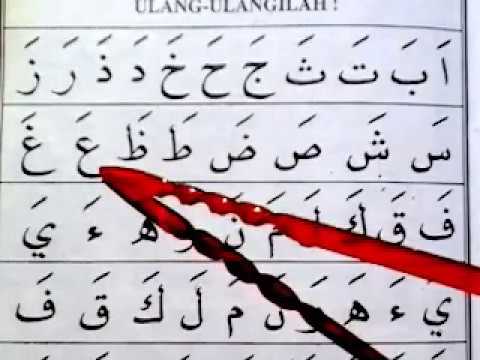 ULANG-ULANGILAH !
اَ بَ تَ ثَ جَ حَ خَ دَ ذَ رَ زَ
سَ شَ صَ ضَ طَ ظَ عَ غَ
فَ قَ كَ لَ مَ نَ وَ هَ ءَ يَ
يَ ءَ هَ وَ نَ مَ لَ كَ قَ فَ